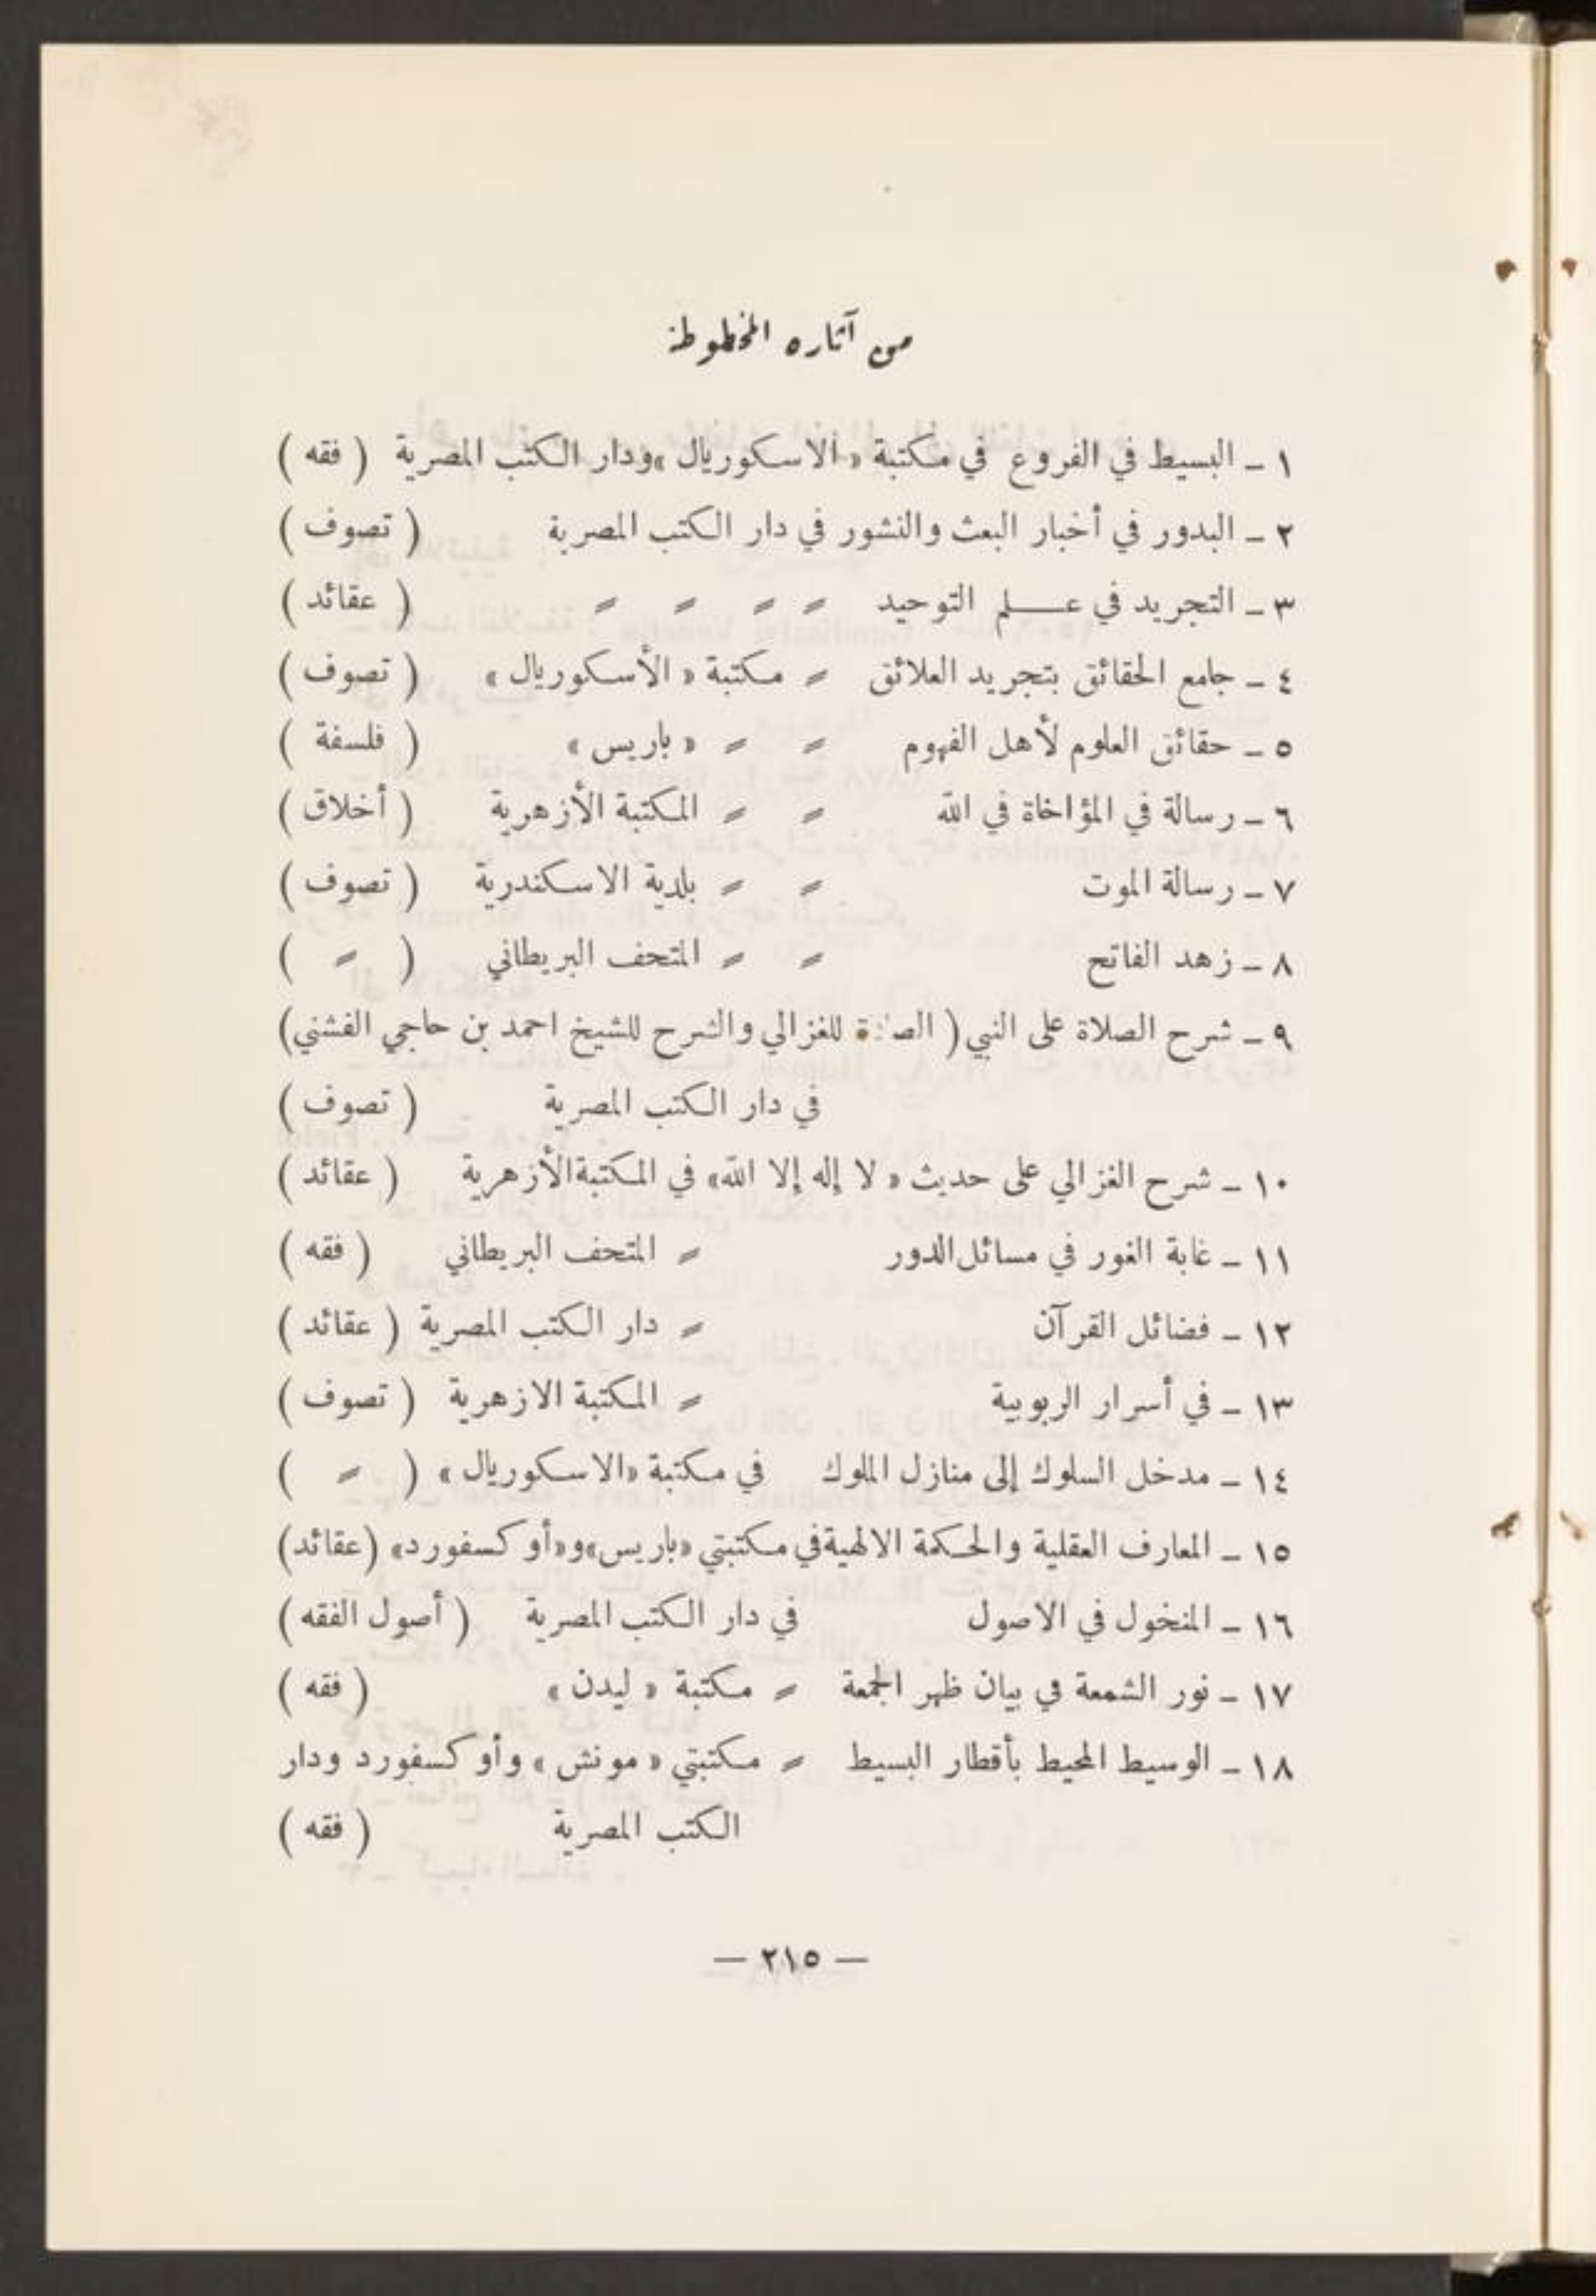 من آثاره المخطوطة
١ ـ البسيط في الفروع في مكتبة « الاسكوريال » ودار الكتب المصرية ( فقه )
٢ ـ البدور في أخبار البعث والنشور في دار الكتب المصرية ( تصوف )
٣ ـ التجريد في عـــلم التوحيد 〃 〃 〃 〃 ( عقائد )
٤ ـ جامع الحقائق بتجريد العلائق 〃 مكتبة « الأسكوريال » ( تصوف )
٥ ـ حقائق العلوم لأهل الفهوم 〃 〃 « باريس » ( فلسفة )
٦ ـ رسالة في المؤاخاة في الله 〃 〃 المكتبة الأزهرية ( أخلاق )
٧ ـ رسالة الموت 〃 〃 بلدية الاسكندرية ( تصوف )
٨ ـ زهد الفاتح 〃 〃 المتحف البريطاني ( 〃 )
٩ ـ شرح الصلاة على النبي ( الصلاة للغزالي والشرح للشيخ احمد بن حاجي الفشني)
في دار الكتب المصرية ( تصوف )
١٠ ـ شرح الغزالي على حديث « لا إله إلا الله» في المكتبة الأزهرية ( عقائد )
١١ ـ غاية الغور في مسائل الدور 〃 المتحف البريطاني ( فقه )
١٢ ـ فضائل القرآن 〃 دار الكتب المصرية ( عقائد )
١٣ ـ في أسرار الربوبية 〃 المكتبة الازهرية ( تصوف )
١٤ ـ مدخل السلوك إلى منازل الملوك في مكتبة «الاسكوريال » ( 〃 )
١٥ ـ المعارف العقلية والحكمة الالهية في مكتبتي «باريس» و«أوكسفورد» (عقائد)
١٦ ـ المنخول في الاصول في دار الكتب المصرية ( أصول الفقه )
١٧ ـ نور الشمعة في بيان ظهر الجمعة 〃 مكتبة « ليدن » ( فقه )
١٨ ـ الوسيط المحيط بأقطار البسيط 〃 مكتبتي « مونش » وأوكسفورد ودار
الكتب المصرية ( فقه )
— ٢١٥ —